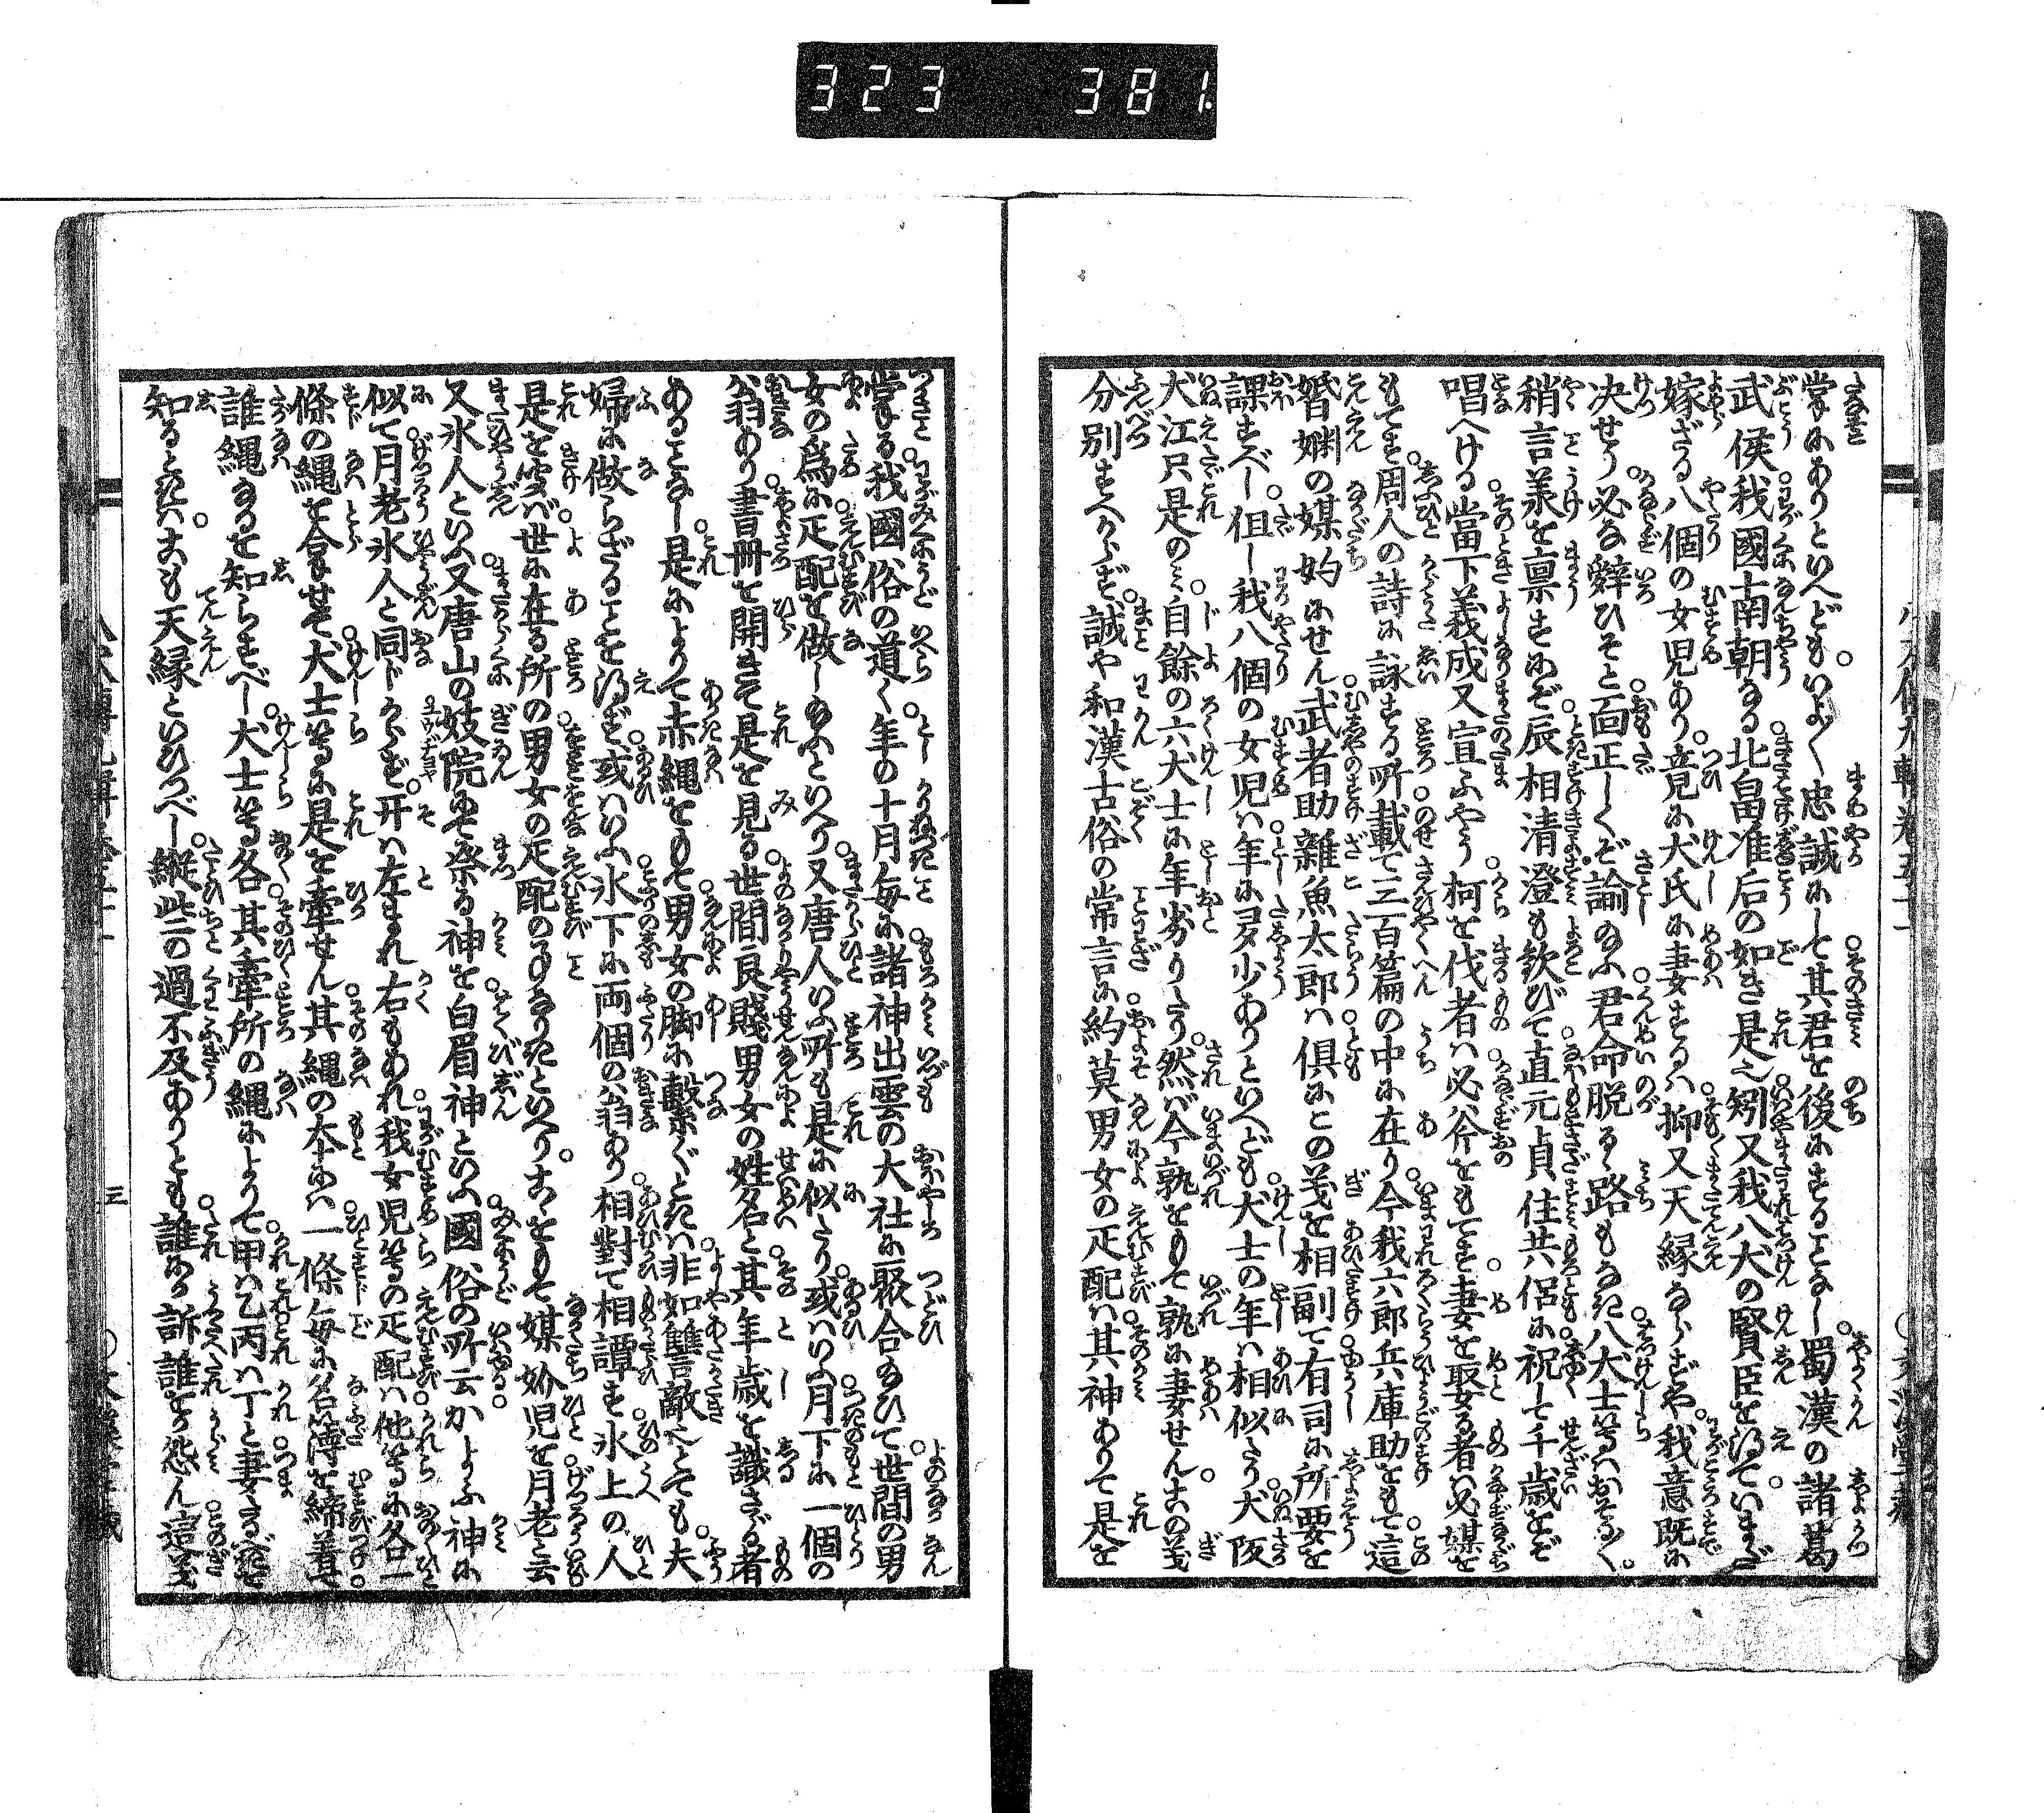 323 381.
掌にありといへども。いよ〳〵忠誠にして其君を後にすることなし。蜀漢の諸葛
武侯我國南朝なる北畠准后の如き是也矧又我八犬の賢臣を得ていまだ
嫁ざる八個の女児あり。竟に犬氏に妻するは抑又天縁ならずや。我意既に
决せり。必な辤ひそと面正しくぞ諭め給ふ君命脱るゝ路もなき八犬士等はおそる〳〵。
稍言羕を禀すにぞ辰相清澄も欽びて直元貞住共侶に祝して千歳をぞ
唱へける。當下義成又宣ふやう。柯を伐者は必斧をもてす。妻を娶る者は必媒を
もてす。周人の詩に詠する所載て三百篇の中に在り。今我六郎兵庫助をもて這
婚姻の媒妁にせん。武者助雑魚太郎は倶にこの義を相副て有司に所要を
課すべし。但し我八個の女児は年に多少ありといへども。犬士の年は相似たり。犬阪
犬江只是のミ。自餘の六犬士に年劣りたり。然ば今孰をもて孰に妻せん。この義
分別すべからず。誠や和漢古俗の常言に約莫男女の疋配は其神ありて是を
掌る。我國俗の道く。年の十月毎に諸神出雲の大社に聚合給ひて。世間の男
女の爲に疋配を做し給ふといへり。又唐人いふ所も是に似たり。或はいふ月下に一個の
翁あり。書冊を開きて是を見る。世間良賤男女の姓名と其年歳を識ざる者
あることなし。是によりて赤縄をもて男女の脚に繋ぐときは。非如讐敵といへとても。夫
婦に做らざることを得ず。或はいふ氷下に両個の翁あり。相對て相譚す。氷上の人
是を突ば。世に在る所の男女の疋配の事なりきといへり。こゝをもて媒妁児を月老と云
又氷人といふ。又唐山の妓院にて祭る神を白眉神といふ。國俗の所云かよふ神に
似て。月老氷人と同じからず。开は左まれ右もあれ。我女児等の疋配は他等に各一
條の縄を合せて。犬士等に是を牽せん。其縄の本には一條毎に名簿を締着て。
誰縄なるを知らすべし。犬士等各其牽所の縄によりて甲は乙丙は丁と妻るべきを
知るときは。こも天縁といひつべし。縦些の過不及ありとも。誰に訴誰をか怨ん。這義
三